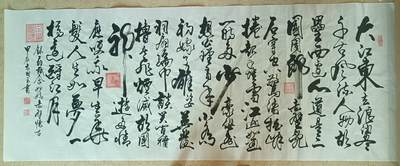 大江東去浪淘
盡千古風流人物故
壘西邊人道是三
國周郎赤壁亂
石穿空驚濤拍岸
捲起千堆雪江山如畫
一時多少豪傑遙
想公瑾當年小喬
初嫁了雄姿英發
羽扇綸巾談笑間
檣櫓灰飛煙滅故國
神遊多情
應笑我早生華
髮人生如夢一
樽還酹江月